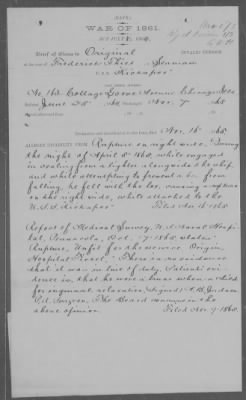 (NAVY.)
WAR OF 1861.
Brief of Claim to Original
INVALID PENSION.
Frederick Thies Seaman
U.S.S. Kickapoo
No. 163 Cottage Grove Avenue Chicago Ills
Enlisted June 28" 186 Discharged Nov. 7 186
Nov. 16" 186
ALLEGED DISABILITY FROM Rupture on right side. During
the night of April 5" 1865, while engaged
in coaling from a lighter alongside the ship,
and while attempting to prevent a box from
falling, he fell with the box, causing a rupture
on the right side, while attached to the
U.S.S. Kickapoo Filed Nov. 16" 1865
Report of Medical Survey, U.S. Naval Hospi-
tal, Pensacola, Oct. 7" 1865 states
Rupture, Unfit for the service. Origin,
Hospital Ticket. There is no evidence
that it was in line of duty. Patient's evi-
dence is, that he was a
for Signed A. B. Judson
P.A. Surgeon. The Board concurs in the
above opinion. Filed Nov. 9" 1865.